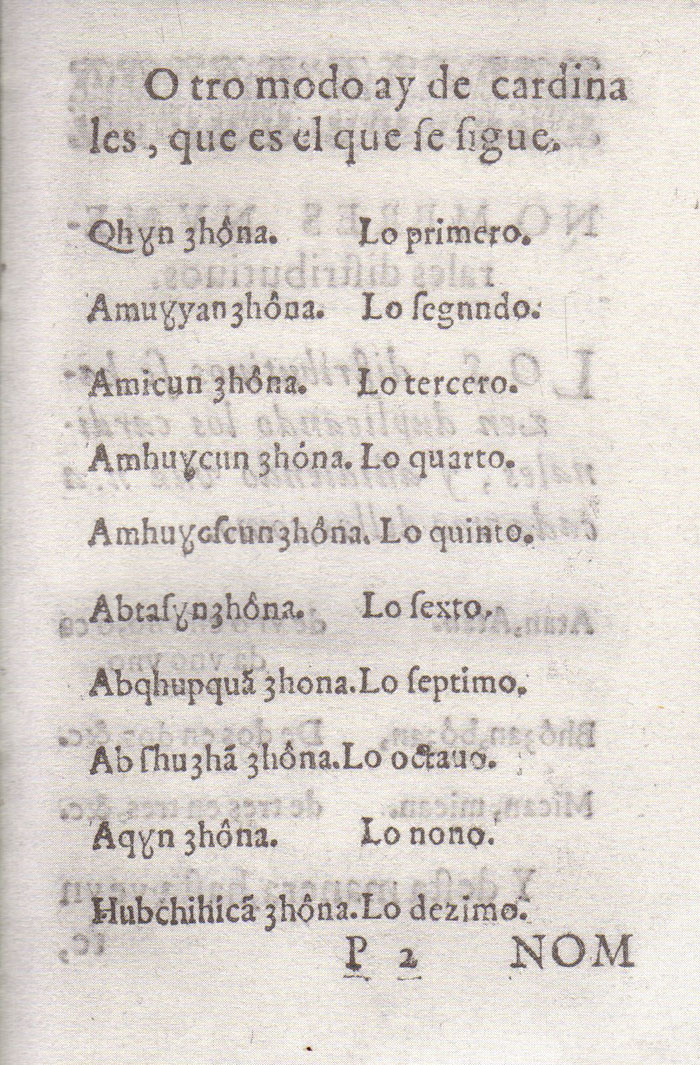 O tro modo ay de cardina
les, que es el que ſe ſigue.
Qhɣn ʒhôna. Lo primero.
Amuɣyanʒhôna. Lo ſegnndo.
Amicun ʒhôna. Lo tercero.
Amhuɣcun ʒhóna. Lo quarto.
Amhuɣcſcunʒhôna. Lo quinto.
Abtaſɣnʒhôna. Lo ſexto.
Abqhupquã ʒhona. Lo ſeptimo.
Ab ſhuʒhã ʒhôna. Lo octauo.
Aqɣn ʒhôna. Lo nono.
Hubchihicã ʒhôna. Lo dezimo.
P 2 NOM